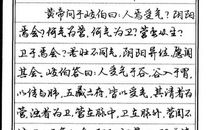 黄帝问于岐伯曰：人焉受气？阴阳
焉会？何气为营？何气为卫？营安从生？
卫于焉会？老壮不同气，阴阳异位，愿闻
其会。岐伯答曰：人受气于谷，谷入于胃，
以传与肺，五藏六府，皆以受气，其清者为
营，浊者为卫，营在脉中，卫在脉外，营周不